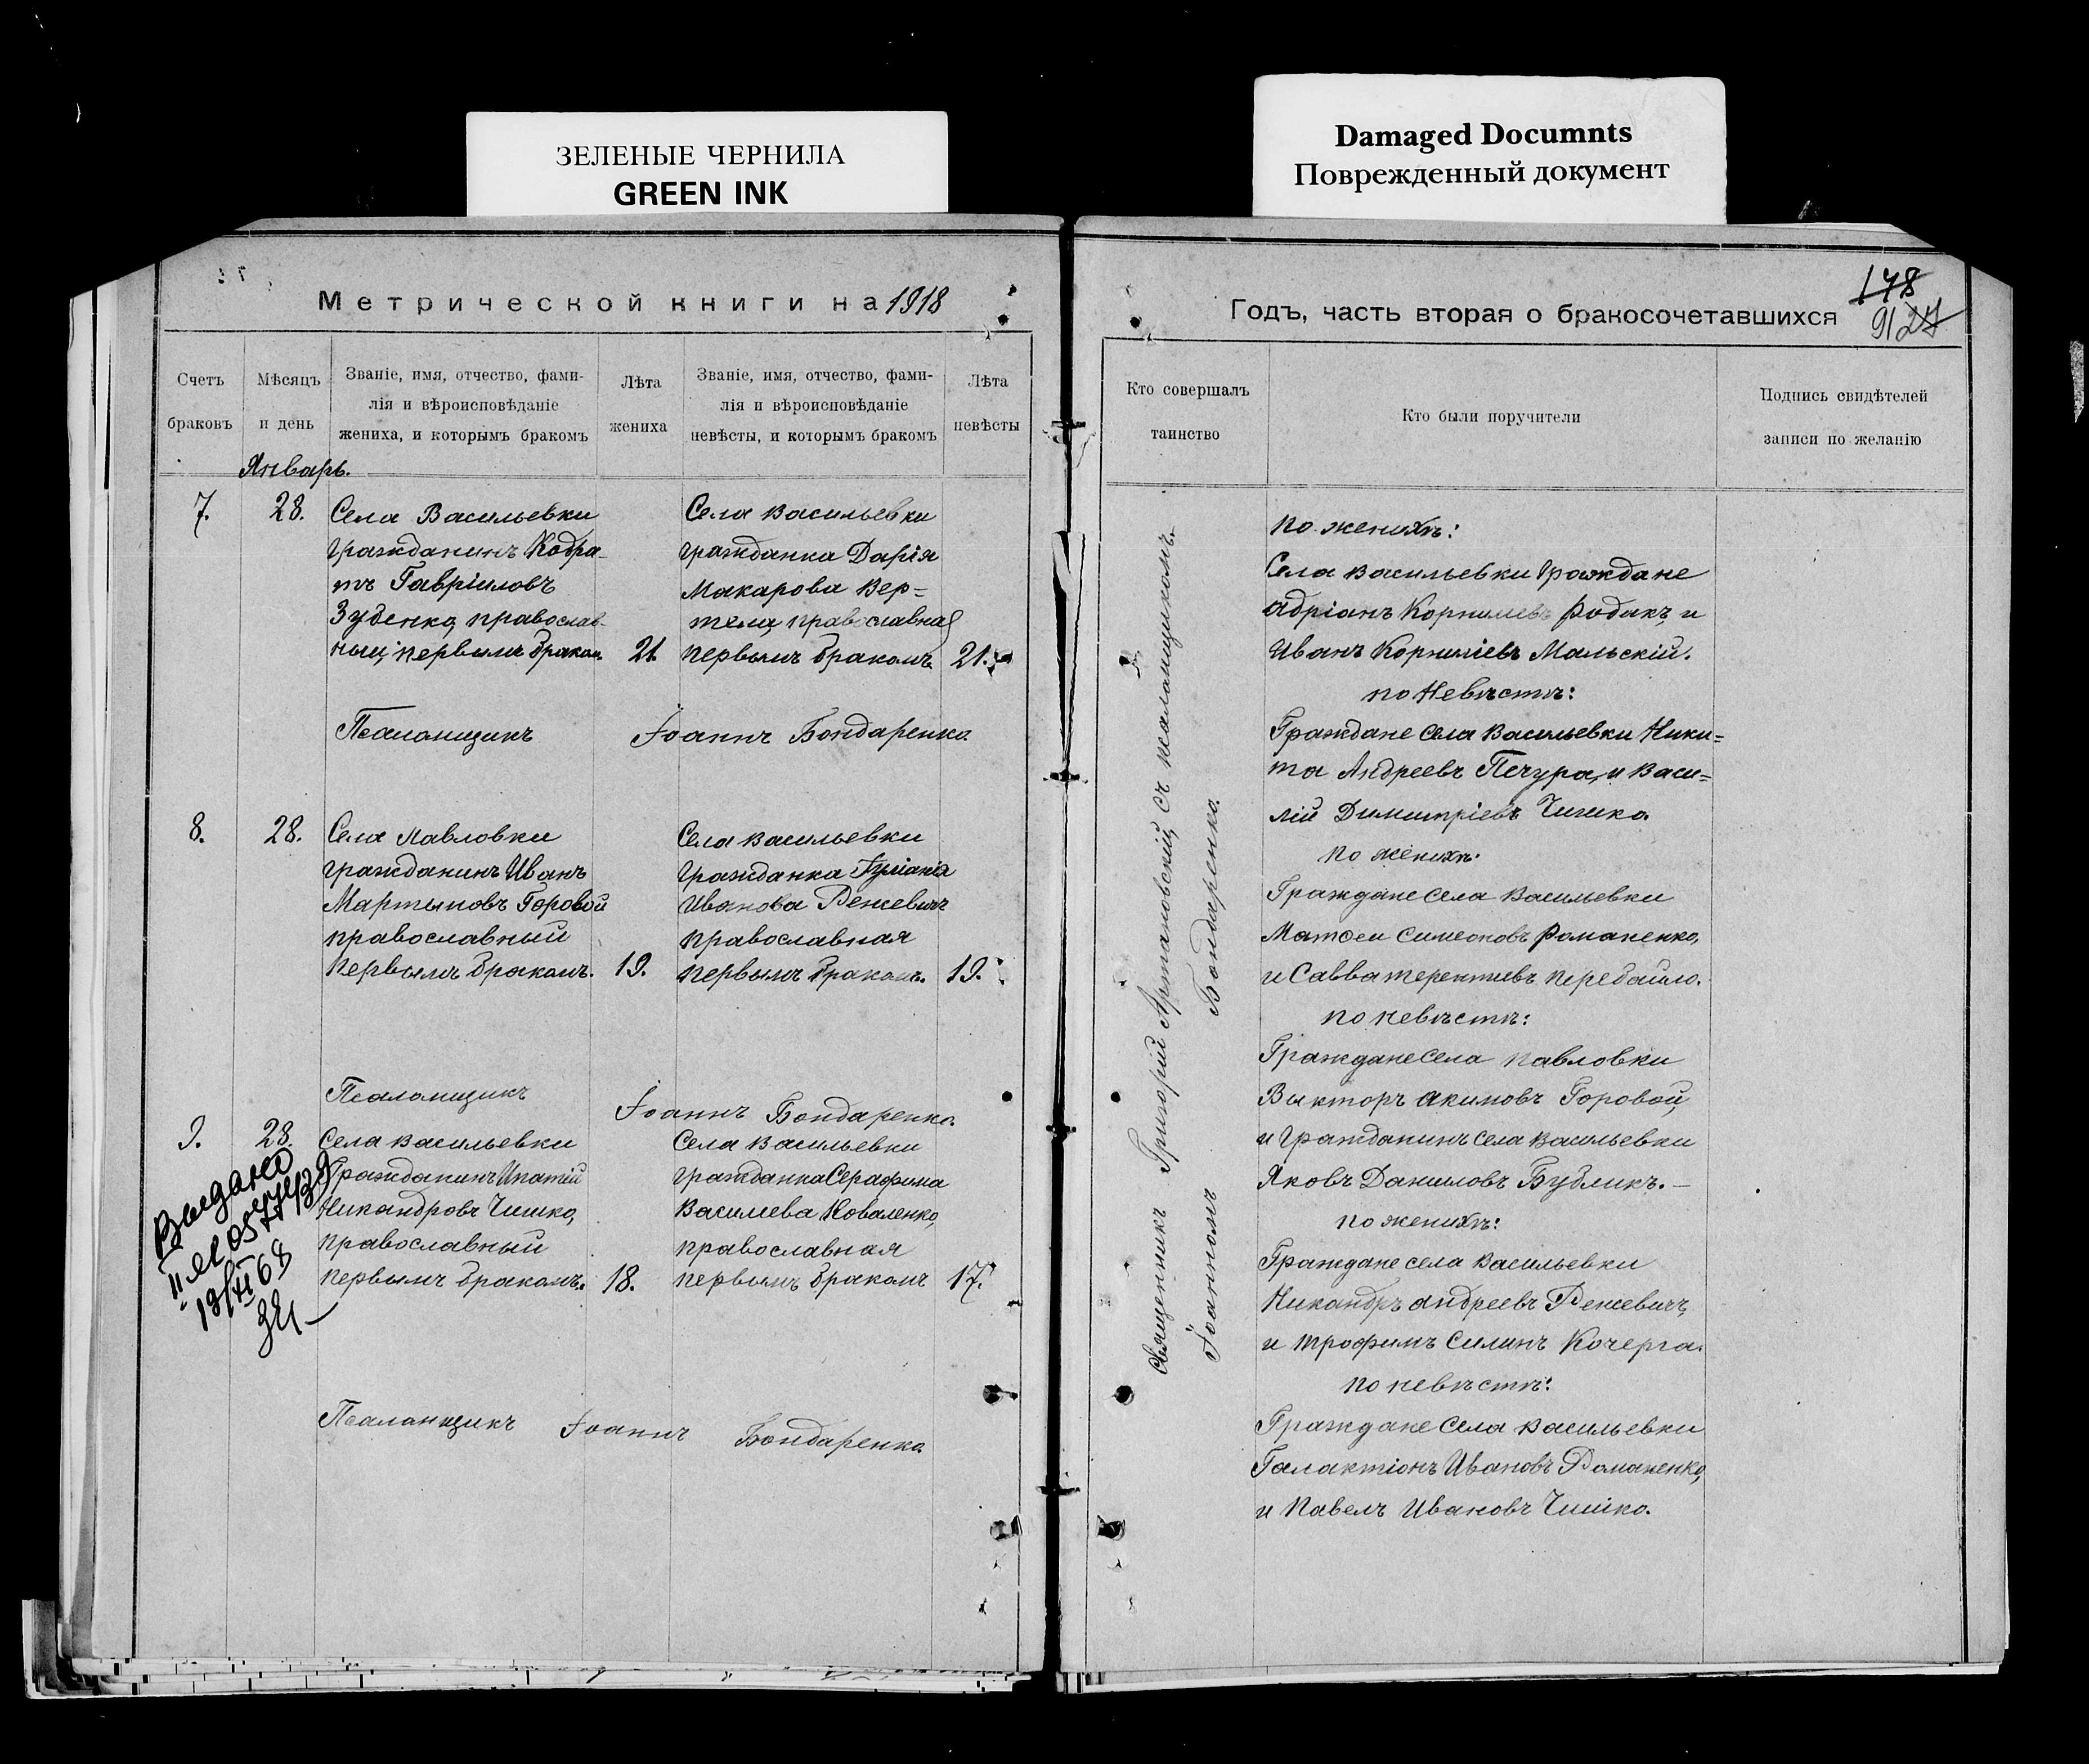 ЗЕЛЕНЫЕ ЧЕРНИЛА
GREEN INK
Damaged Documnts
Поврежденный документ
Метрической книги на 1918
Счетъ браковъ
Мѣсяцъ и день
Званіе, имя, отчество, фами-
лія и вѣроисповѣданіе
жениха, и которымъ бракомъ
Лѣта жениха
Званіе, имя, отчество, фами-
лія и вѣроисповѣданіе
невѣсты, и которымъ бракомъ
Лѣта невѣсты
Январь.
7.
28.
Села Васильевки
гражданинъ Кодра-
тъ Гавріиловъ
Зуденко, православ-
ный, первымъ браком
21.
Села Васильевки
гражданка Дарія
Макарова Вер-
тела, православная
первымъ бракомъ
21.
Псаломщикъ Іоаннъ Бондаренко
8.
28.
Села Павловки
гражданинъ Иванъ
Мартыновъ Горовой
православный
первымъ бракомъ.
19.
Села Васильевки
гражданка Іуліанія
Иванова Ренсевичъ
православная
первымъ бракомъ.
19.
Псаломщикъ Іоаннъ Бондаренко.
9.
28.
Села Васильевки
Гражданинъ Ипатій
Никандровъ Чишко,
православный
первымъ бракомъ.
18.
Села Васильевки
гражданка Серафима
Василіева Коваленко,
православная
первымъ бракомъ
17.
Выдано
13/XII 68
Псаломщикъ Іоаннъ Бондаренко
Годъ, часть вторая о бракосочетавшихся
178
91 27
Кто совершалъ
таинство
Кто были поручители
Подпись свидѣтелей
записи по желанію
Священникъ Григорій Артановскій, съ псаломщикомъ
Іоанномъ Бондаренко.
по женихѣ:
Села Васильевки Граждане
Адріанъ Корниліевъ Родакъ, и
Иванъ Корниліевъ Мальскій.
по Невѣстѣ:
Граждане села Васильевки Ники=
та Андреевъ Печура, и Васи=
лій Димитріевъ Чишко.
по женихѣ:
Граждане села Васильевки
Матѳеи Симеоновъ Романенко,
и Савва Терентіевъ Передайло.
по невѣстѣ:
Граждане села Павловки
Викторъ Акимовъ Горовой,
и Гражданинъ села Васильевки
Яковъ Даниловъ Бубликъ.—
по женихѣ:
Граждане села Васильевки
Никандръ Андреевъ Ренсевичъ,
и Трофимъ Силинъ Кочерга.
по невѣстѣ:
Граждане села Васильевки
Галактіонъ Ивановъ Романенко,
и Павелъ Ивановъ Чишко.